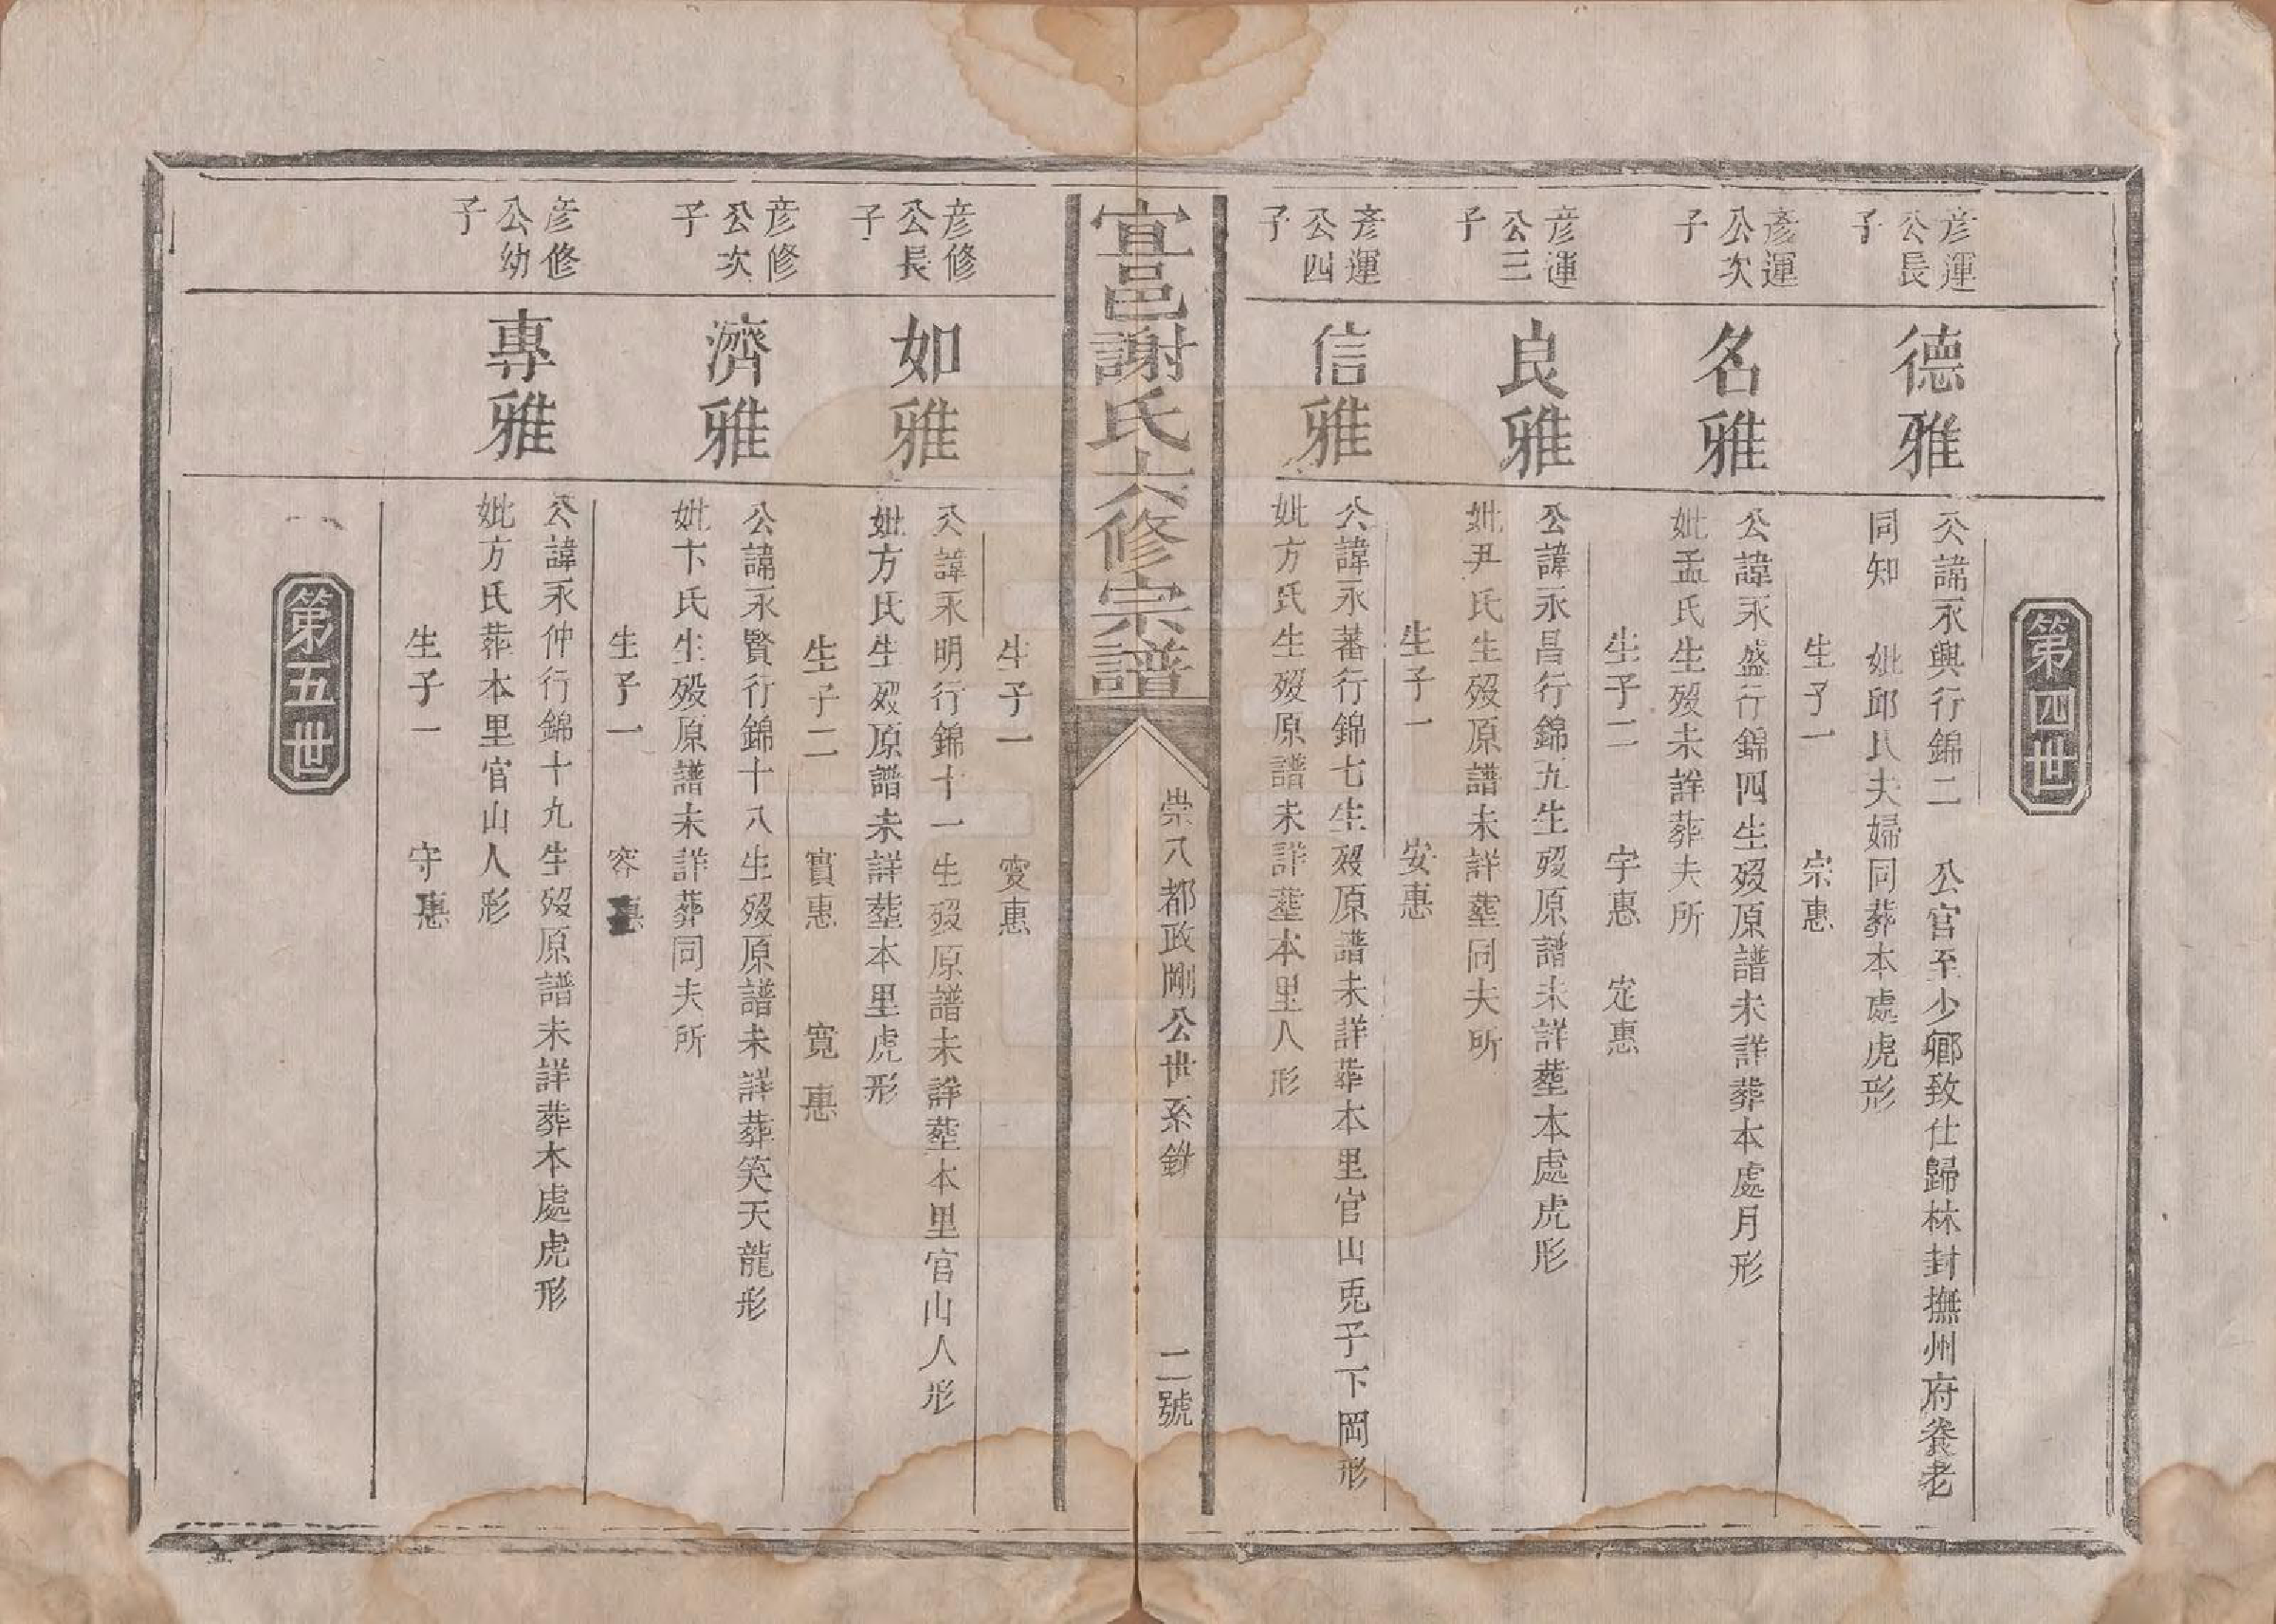 第四世
彦運
公長
子
德雅
公諱永興行錦二 公官至少卿致仕歸林封撫州府養老
同知 妣邱氏夫婦同葬本處虎形
生子一 宗惠
彦運
公次
子
名雅
公諱永盛行錦四生歿原譜未詳葬本處月形
妣孟氏生歿未詳葬夫所
生子二 宇惠 定惠
彦運
公三
子
良雅
公諱永昌行錦五生歿原譜未詳塟本處虎形
妣尹氏生歿原譜未詳塟同夫所
生子一 安惠
彦運
公四
子
信雅
公諱永蕃行錦七生歿原譜未詳葬本里官山兎子下岡形
妣方氏生歿原譜未詳塟本里人形
宜邑謝氏六修宗譜
崇八都政剛公世系
二號
生子一 㝊惠
彦修
公長
子
如雅
公諱永明行錦十一生歿原譜未詳塟本里官山人形
妣方氏生歿原譜未詳塟本里虎形
生子二 實惠 寬惠
彦修
公次
子
濟雅
公諱永賢行錦十八生歿原譜未詳葬笑天龍形
妣卞氏生歿原譜未詳葬同夫所
生子一 容惠
彦修
公幼
子
專雅
公諱永仲行錦十九生歿原譜未詳葬本處虎形
妣方氏葬本里官山人形
生子一 守惠
第五世